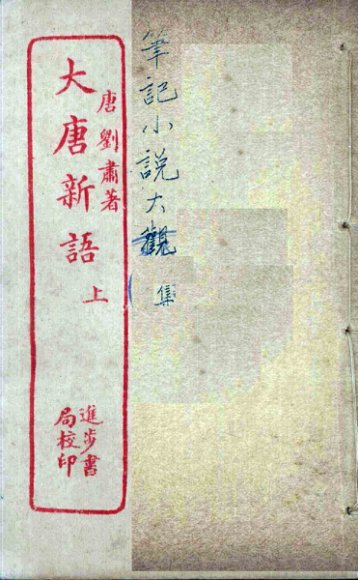 筆記小説大觀 集
唐劉肅著
大唐新語 上
進步書
局校印